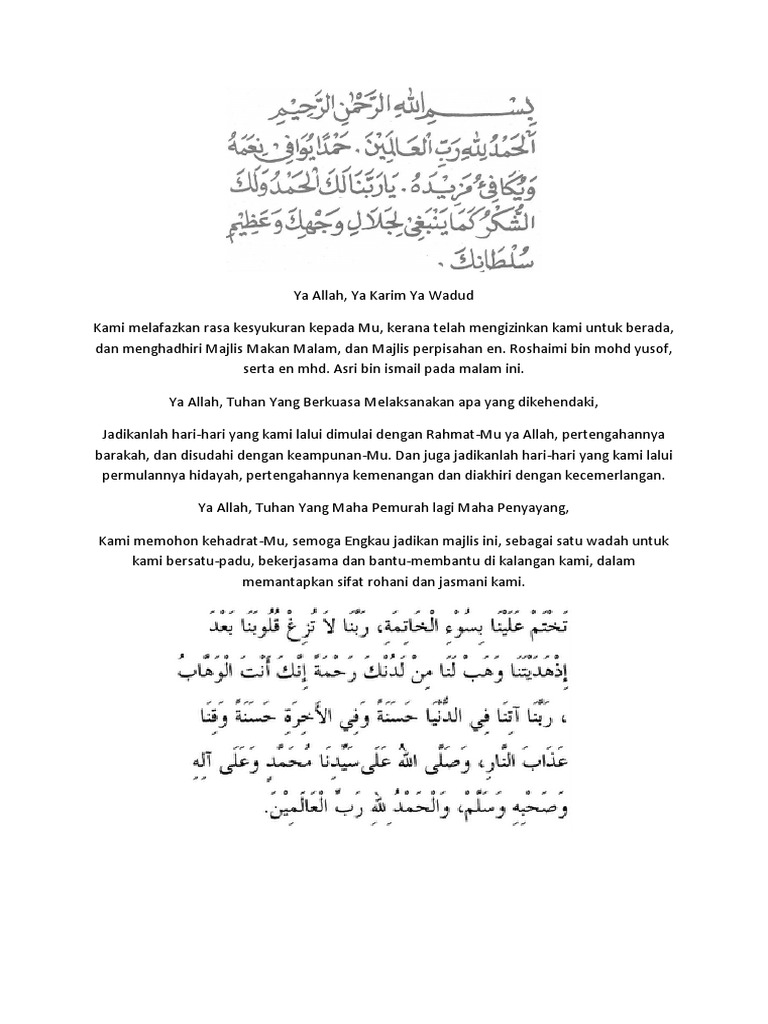 بِسْمِ اللهِ الرَّحْمٰنِ الرَّحِيْمِ
اَلْحَمْدُ لِلّٰهِ رَبِّ الْعَالَمِيْنَ. حَمْدًا يُوَافِيْ نِعَمَهُ
وَيُكَافِئُ مَزِيْدَهُ. يَا رَبَّنَا لَكَ الْحَمْدُ وَلَكَ
الشُّكْرُ كَمَا يَنْبَغِيْ لِجَلَالِ وَجْهِكَ وَعَظِيْمِ
سُلْطَانِكَ.
Ya Allah, Ya Karim Ya Wadud
Kami melafazkan rasa kesyukuran kepada Mu, kerana telah mengizinkan kami untuk berada,
dan menghadhiri Majlis Makan Malam, dan Majlis perpisahan en. Roshaimi bin mohd yusof,
serta en mhd. Asri bin ismail pada malam ini.
Ya Allah, Tuhan Yang Berkuasa Melaksanakan apa yang dikehendaki,
Jadikanlah hari-hari yang kami lalui dimulai dengan Rahmat-Mu ya Allah, pertengahannya
barakah, dan disudahi dengan keampunan-Mu. Dan juga jadikanlah hari-hari yang kami lalui
permulannya hidayah, pertengahannya kemenangan dan diakhiri dengan kecemerlangan.
Ya Allah, Tuhan Yang Maha Pemurah lagi Maha Penyayang,
Kami memohon kehadrat-Mu, semoga Engkau jadikan majlis ini, sebagai satu wadah untuk
kami bersatu-padu, bekerjasama dan bantu-membantu di kalangan kami, dalam
memantapkan sifat rohani dan jasmani kami.
تَخْتَمْ عَلَيْنَا بِسُوْءِ الْخَاتِمَةِ، رَبَّنَا لاَ تُزِغْ قُلُوبَنَا بَعْدَ
إِذْهَدَيْتَنَا وَهَبْ لَنَا مِنْ لَدُنْكَ رَحْمَةً إِنَّكَ أَنْتَ الْوَهَّابُ
، رَبَّنَا آتِنَا فِي الدُّنْيَا حَسَنَةً وَفِي الْأَخِرَةِ حَسَنَةً وَقِنَا
عَذَابَ النَّارِ، وَصَلَّى اللهُ عَلَى سَيِّدِنَا مُحَمَّدٍ وَعَلَى آلِهِ
وَصَحْبِهِ وَسَلَّمْ، وَالْحَمْدُ لِلهِ رَبِّ الْعَالَمِيْنَ.